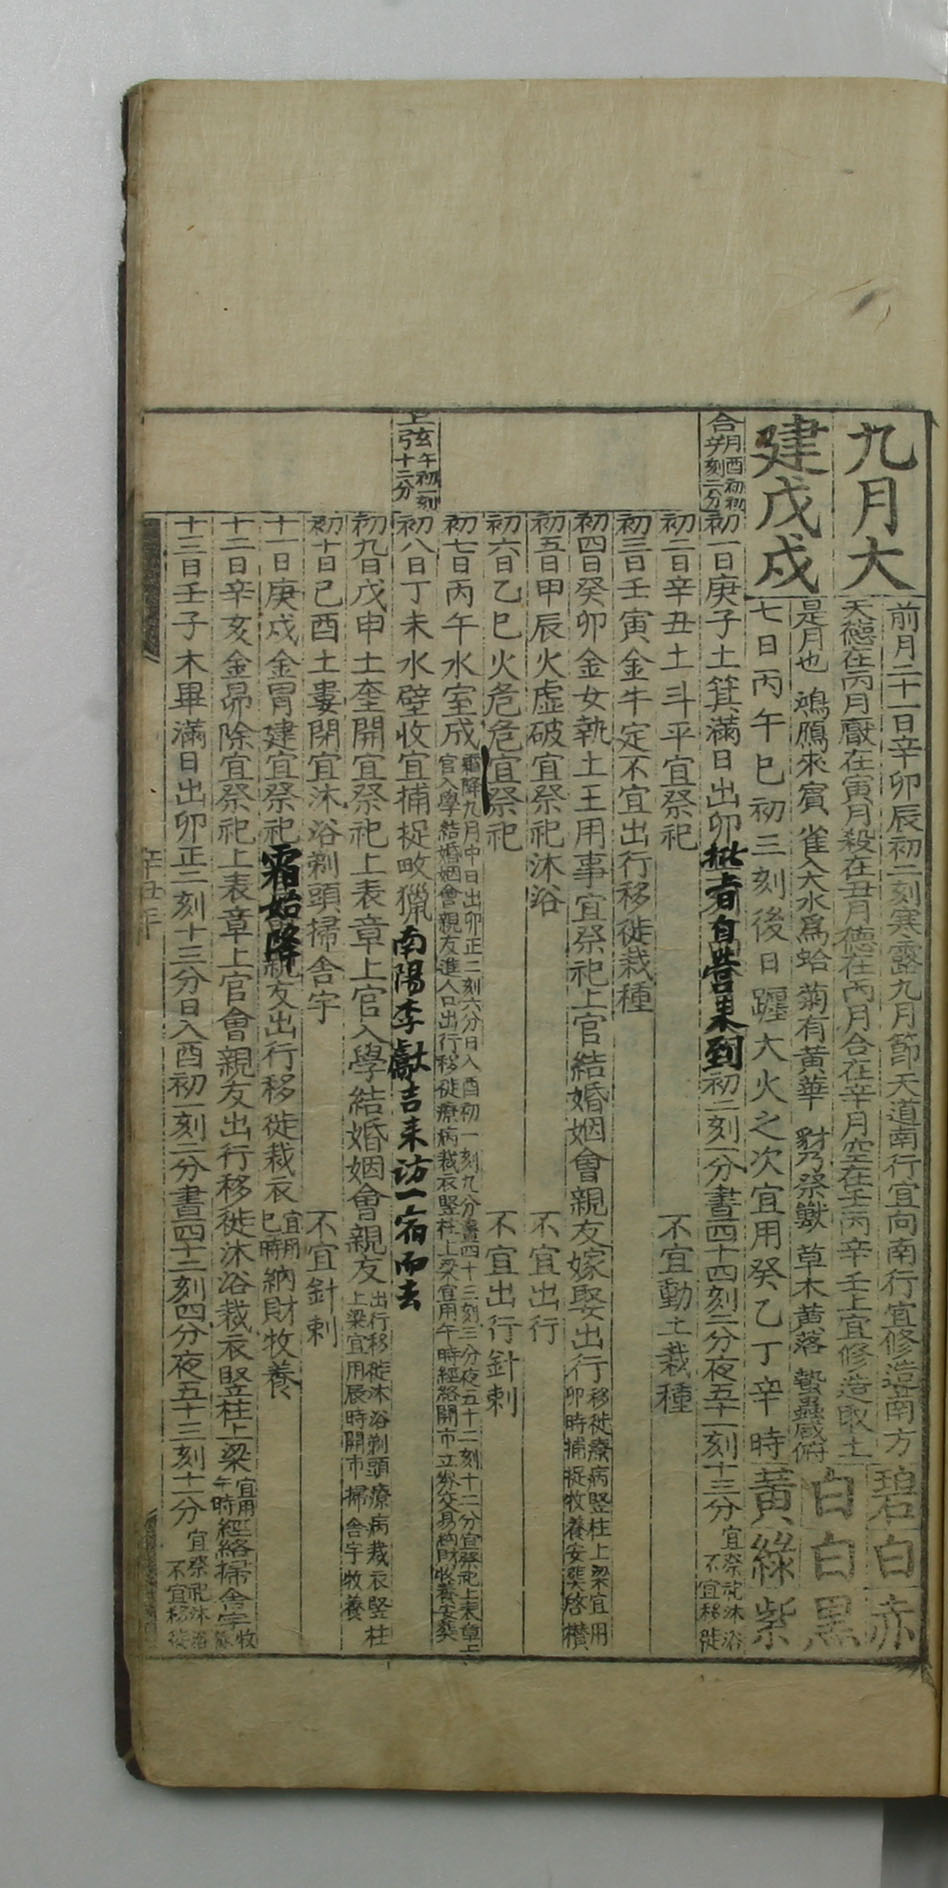 九月大
建戊戌
前月二十一日辛卯辰初二刻寒露九月節天道南行宜向南行宜修造南方
天德在丙月厭在寅月殺在丑月德在丙月合在辛月空在壬丙辛壬上宜修造取土
是月也 鴻鴈來賓 雀入大水爲蛤 菊有黃華 豺乃祭獸 草木黃落 蟄蟲咸俯
七日丙午巳初三刻後日躔大火之次宜用癸乙丁辛時
碧白赤
白白黑
黃綠紫
合朔酉初初刻二分
初一日庚子土箕滿日出卯 初二刻一分晝四十四刻二分夜五十一刻十三分 宜祭祀沐浴 不宜移徙
自營來到
初二日辛丑土斗平宜祭祀 不宜動土栽種
初三日壬寅金牛定不宜出行移徙栽種
初四日癸卯金女執土王用事宜祭祀上官結婚姻會親友嫁娶出行移徙療病竪柱上梁宜用卯時捕捉牧養安葬啓欑
初五日甲辰火虛破宜祭祀沐浴 不宜出行
初六日乙巳火危危宜祭祀 不宜出行針刺
初七日丙午水室成霜降九月中日出卯正二刻六分日入酉初一刻九分晝四十三刻三分夜五十二刻十二分宜祭祀上表章上官入學結婚姻會親友進人口出行移徙療病裁衣竪柱上梁宜用午時經絡開市立券交易納財牧養安葬
上弦午初一刻十二分
初八日丁未水壁收宜捕捉畋獵
南陽李獻吉来访一宿而去
初九日戊申土奎開宜祭祀上表章上官入學結婚姻會親友出行移徙沐浴剃頭療病裁衣竪柱上梁宜用辰時開市掃舍宇牧養
初十日己酉土婁閉宜沐浴剃頭掃舍宇 不宜針刺
十一日庚戌金胃建宜祭祀 親友出行移徙裁衣宜用巳時納財牧養
霜始降
十二日辛亥金昴除宜祭祀上表章上官會親友出行移徙沐浴裁衣竪柱上梁宜用午時經絡掃舍宇牧
十三日壬子木畢滿日出卯正二刻十三分日入酉初一刻二分晝四十二刻四分夜五十三刻十一分 宜祭祀沐浴 不宜移徙
辛丑年